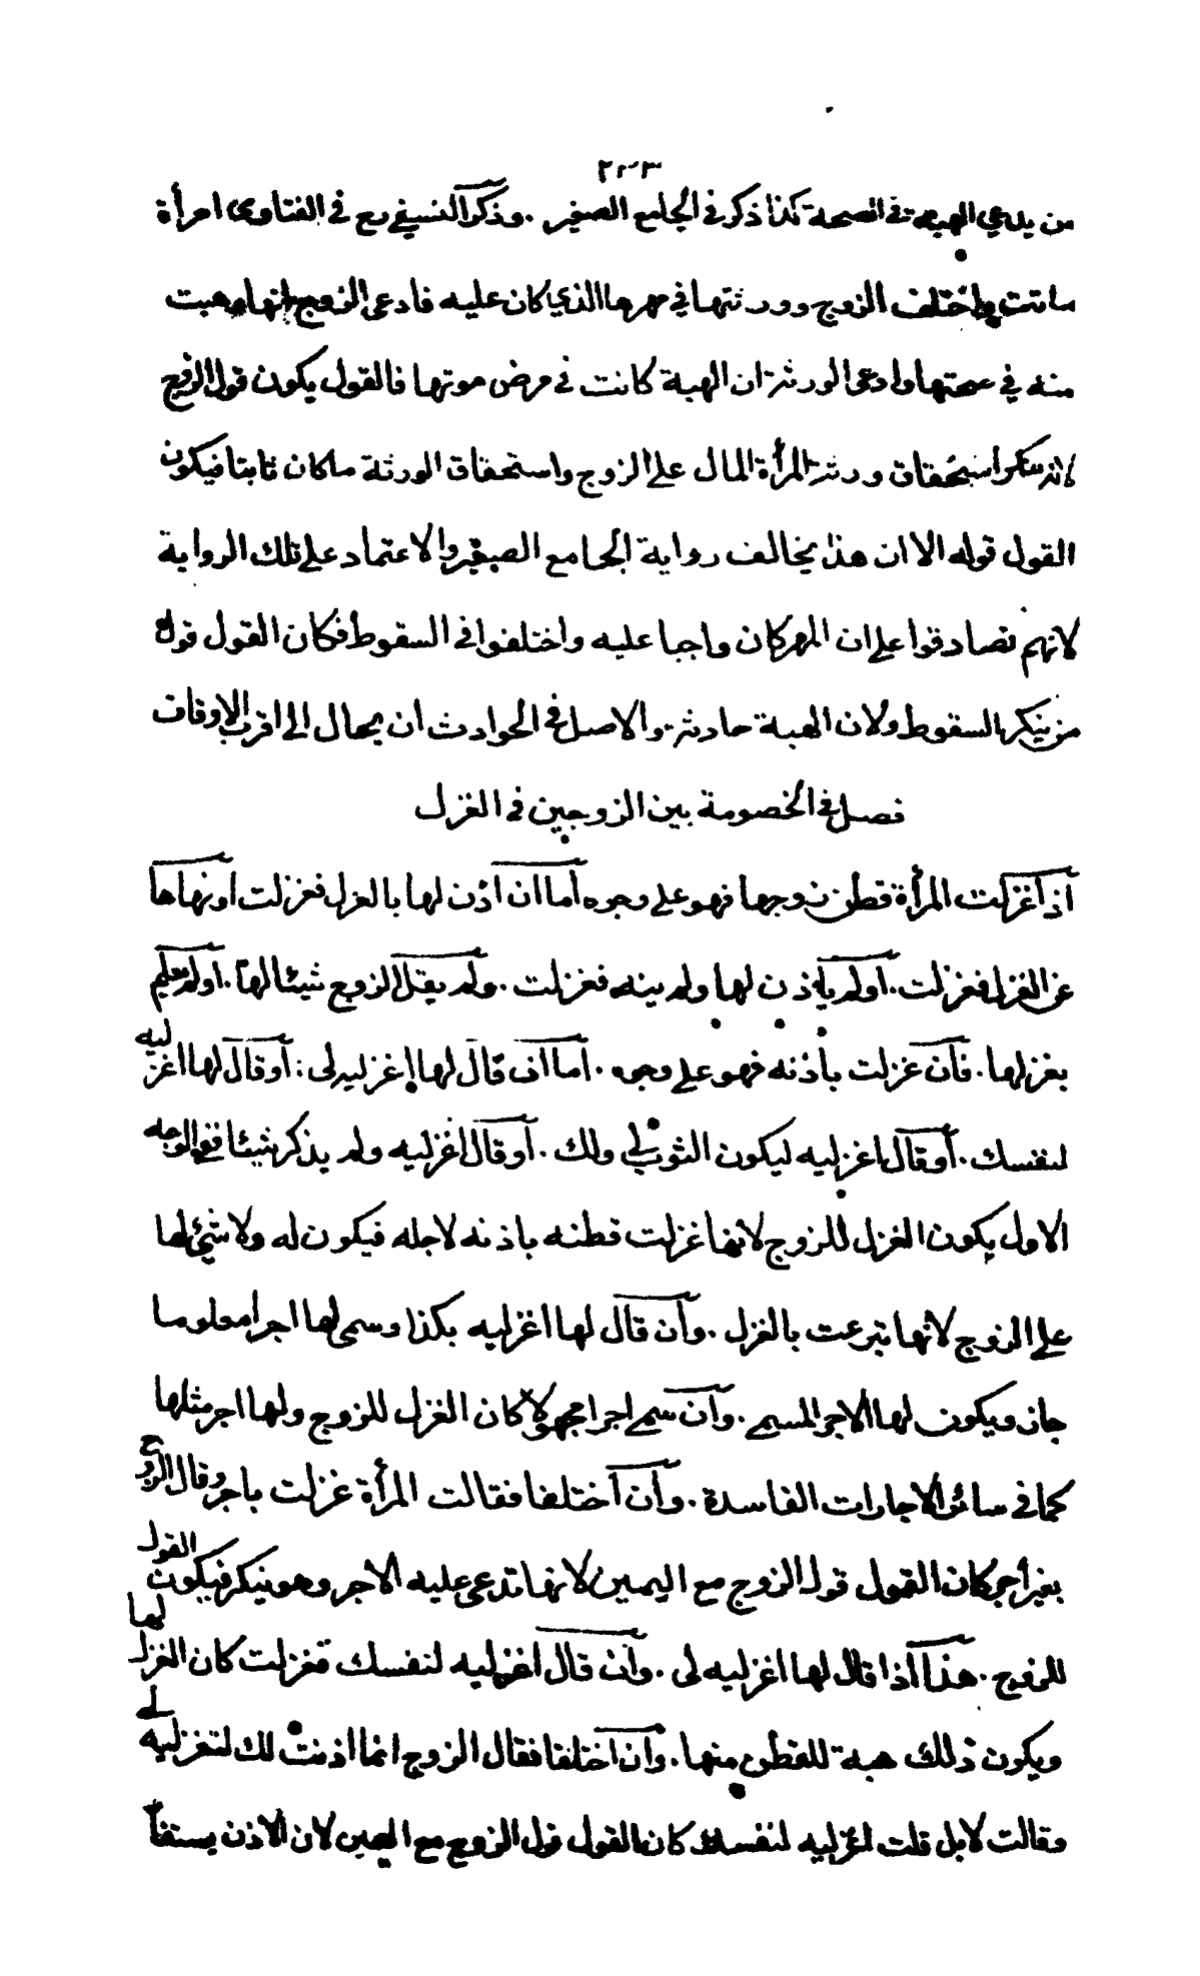 ٢٢٣
من يدعي الهبة في الصحة كذا ذكر في الجامع الصغير . وذكر النسفي رح في الفتاوى امرأة
ماتت واختلف الزوج وورثتها في مهرها الذي كان عليه فادعى الزوج انها وهبت
منه في صحتها وادعى الورثة ان الهبة كانت في مرض موتها فالقول يكون قول الزوج
لانه ينكر استحقاق ورثة المرأة المال على الزوج واستحقاق الورثة ما كان ثابتا فيكون
القول قوله الا ان هذا يخالف رواية الجامع الصغير والاعتماد على تلك الرواية
لانهم تصادقوا على ان المهر كان واجبا عليه واختلفوا في السقوط فكان القول قول
من ينكر السقوط ولان الهبة حادثة والاصل في الحوادث ان يحال الى اقرب الاوقات
فصل في الخصومة بين الزوجين في الغزل
اذا غزلت المرأة قطن زوجها فهو على وجوه اما ان اذن لها بالغزل فغزلت او نهاها
عن الغزل فغزلت . او لم يأذن لها ولم ينه فغزلت . ولم يقل الزوج شيئا لها . او لم يعلم
بغزلها . فان غزلت باذنه فهو على وجوه . اما ان قال لها اغزليه لي : او قال لها اغزليه
لنفسك . او قال اغزليه ليكون الثوب لي ولك . او قال اغزليه ولم يذكر شيئا ففي الوجه
الاول يكون الغزل للزوج لانها غزلت قطنه باذنه لاجله فيكون له ولا شئ لها
على الزوج لانها تبرعت بالغزل . وان قال لها اغزليه بكذا وسمى لها اجرا معلوما
جاز ويكون لها الاجر المسمى . وان سمى اجرا مجهولا كان الغزل للزوج ولها اجر مثلها
كما في سائر الاجارات الفاسدة . وان اختلفا فقالت المرأة غزلت باجر وقال الزوج
بغير اجر كان القول قول الزوج مع اليمين لانها تدعى عليه الاجر وهو ينكر فيكون القول
للزوج . هذا اذا قال لها اغزليه لى . وان قال اغزليه لنفسك فغزلت كان الغزل لها
ويكون ذلك هبة للقطن منها . وان اختلفا فقال الزوج انما اذنت لك لتغزليه لى
وقالت لا بل قلت اغزليه لنفسك كان القول قول الزوج مع اليمين لان الاذن يستفا